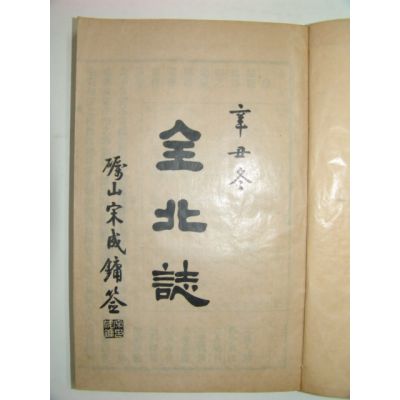 辛丑冬
全北誌
礪山宋成鏞签